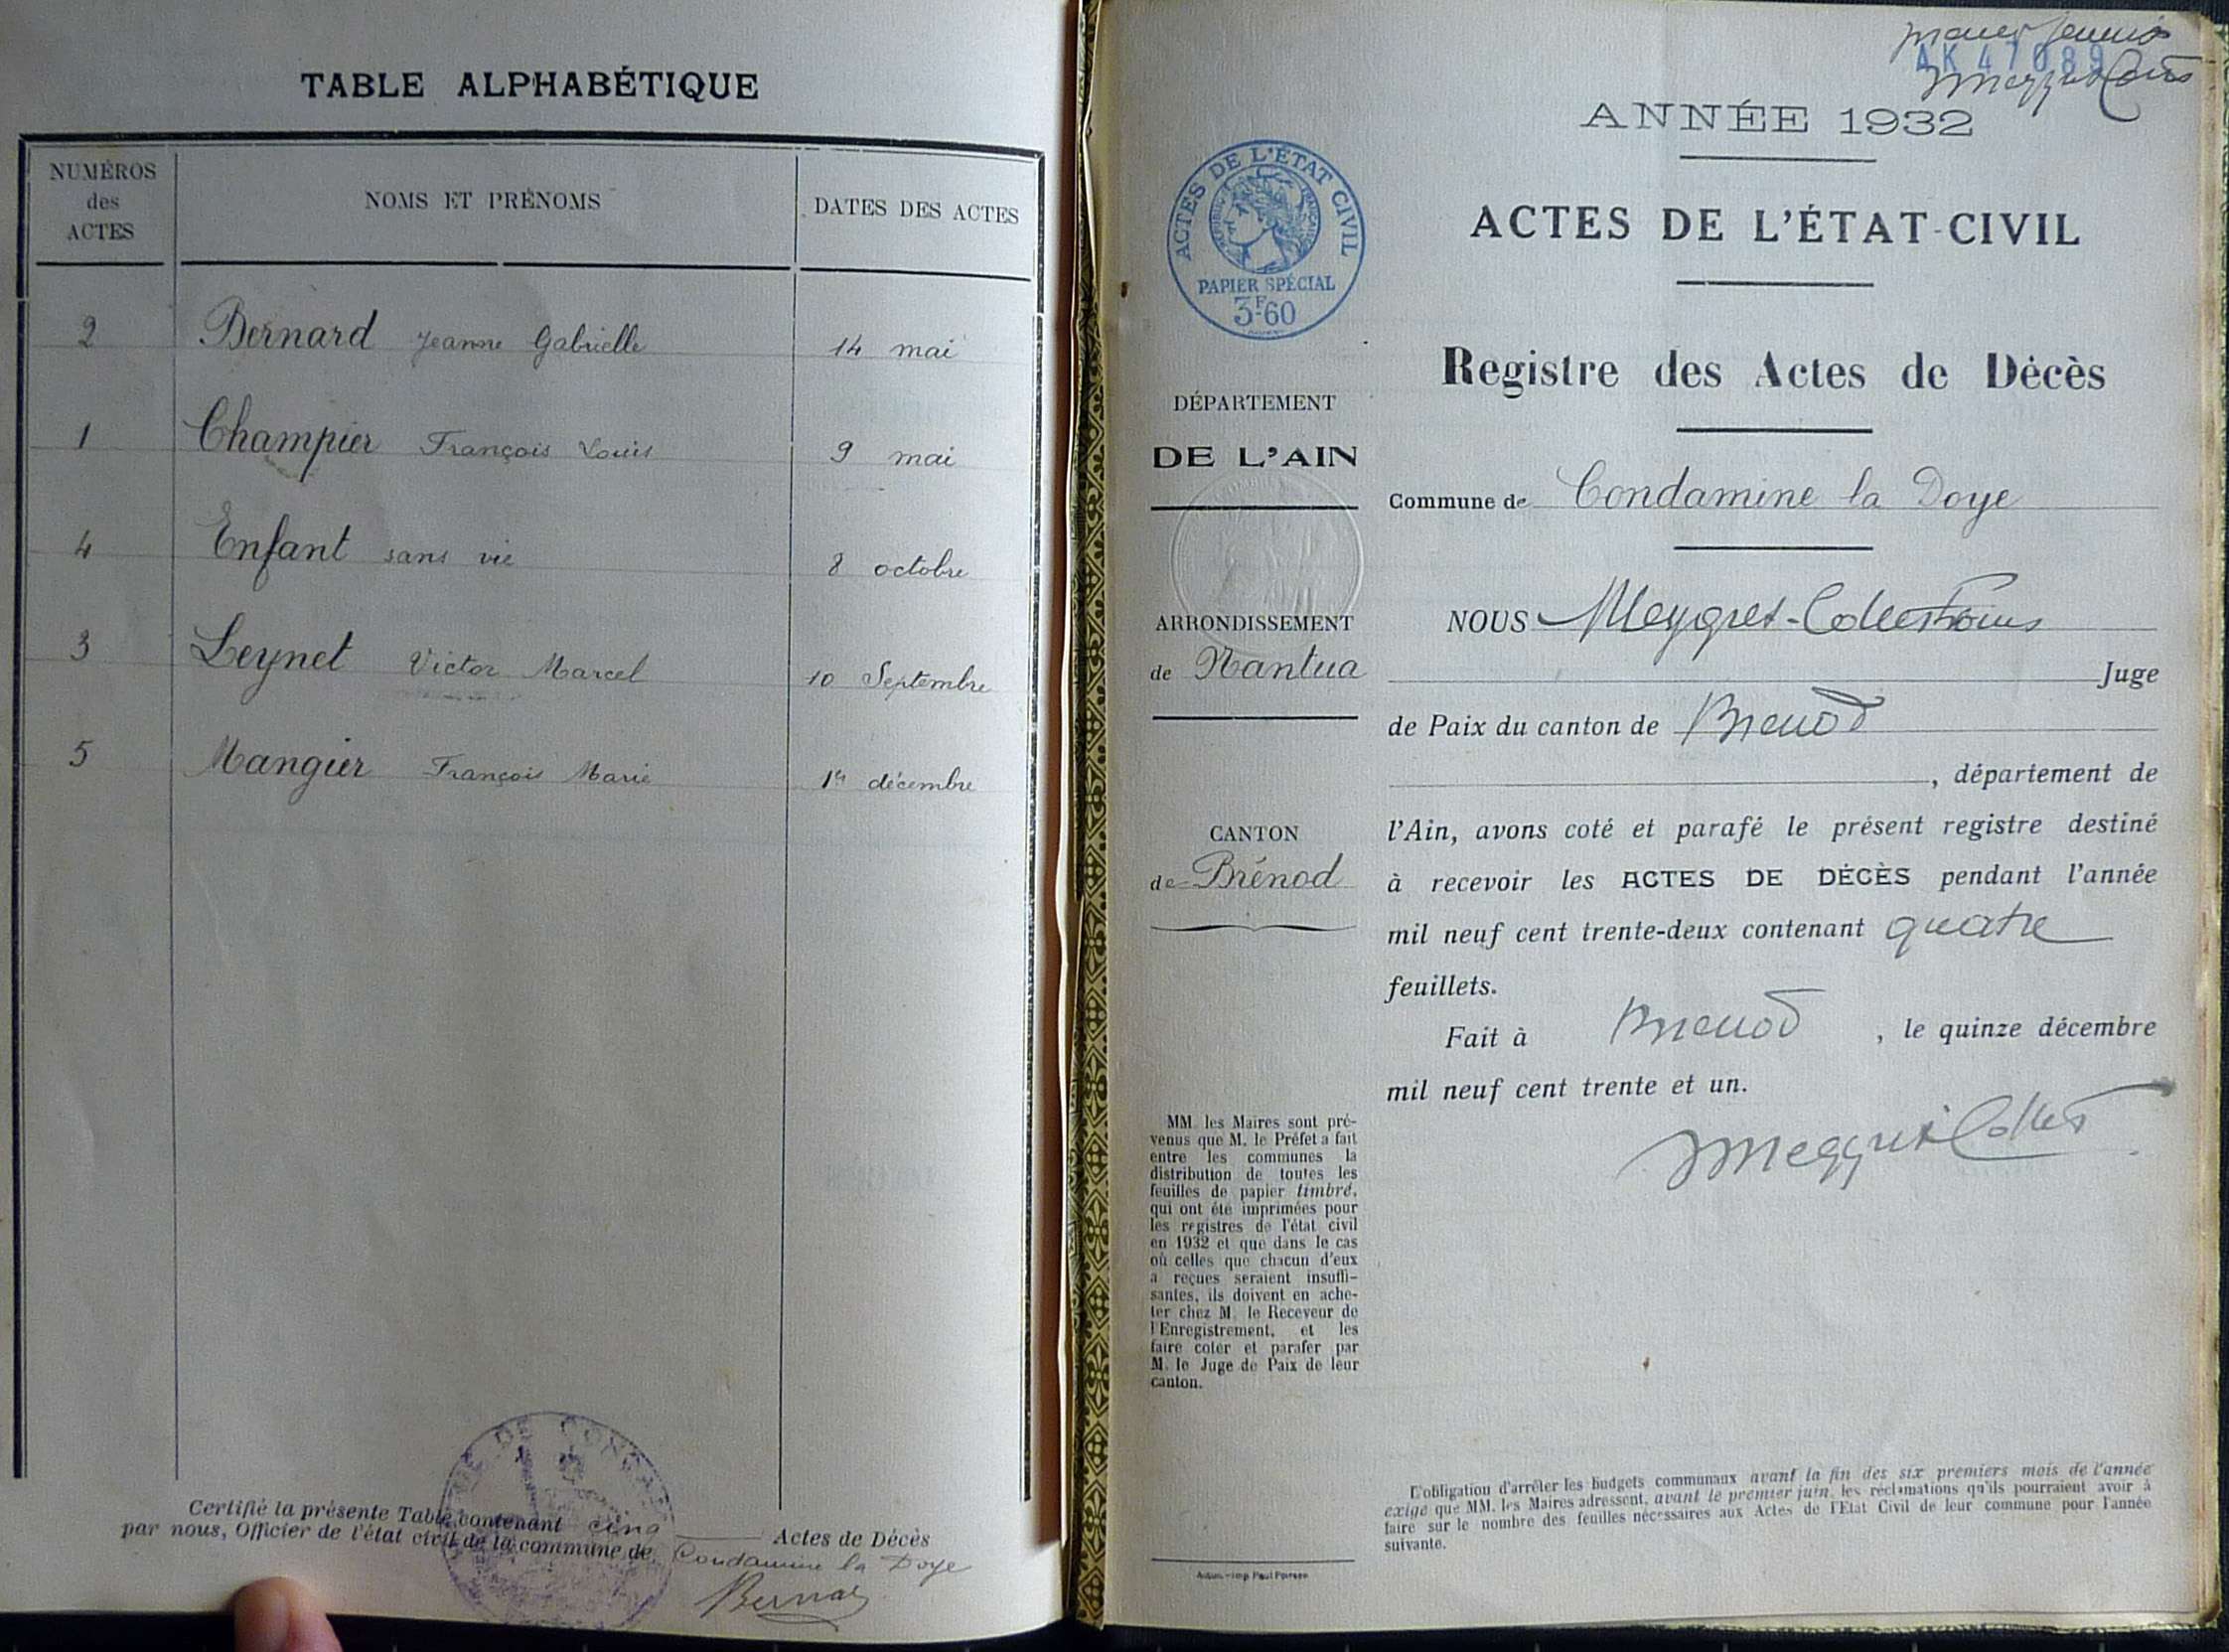 TABLE ALPHABÉTIQUE
NUMÉROS
des
ACTES
NOMS ET PRÉNOMS
DATES DES ACTES
2 Bernard Jeanne Gabrielle 14 mai
1 Champier François Louis 9 mai
4 Enfant sans vie 8 octobre
3 Leynet Victor Marcel 10 Septembre
5 Mangier François Marie 1er décembre
Certifié la présente Table contenant cinq Actes de Décès
par nous, Officier de l'état civil de la commune de Condamine la Doye
AK 47089
ANNÉE 1932
ACTES DE L'ÉTAT CIVIL
PAPIER SPÉCIAL
3F60
ACTES DE L'ÉTAT-CIVIL
Registre des Actes de Décès
DÉPARTEMENT
DE L'AIN
Commune de Condamine la Doye
ARRONDISSEMENT
de Nantua
CANTON
de Brénod
NOUS
Juge
de Paix du canton de Brenod
, département de
l'Ain, avons coté et parafé le présent registre destiné
à recevoir les ACTES DE DÉCÈS pendant l'année
mil neuf cent trente-deux contenant quatre
feuillets.
Fait à Brenod , le quinze décembre
mil neuf cent trente et un.
MM. les Maires sont pré-
venus que M. le Préfet a fait
entre les communes la
distribution de toutes les
feuilles de papier timbré,
qui ont été imprimées pour
les registres de l'état civil
en 1932 et que dans le cas
où celles que chacun d'eux
a reçues seraient insuffi-
santes, ils doivent en ache-
ter chez M. le Receveur de
l'Enregistrement, et les
faire coter et parafer par
M. le Juge de Paix de leur
canton.
L'obligation d'arrêter les budgets communaux avant la fin des six premiers mois de l'année
exige que MM. les Maires adressent, avant le premier juin, les réclamations qu'ils pourraient avoir à
faire sur le nombre des feuilles nécessaires aux Actes de l'Etat Civil de leur commune pour l'année
suivante.